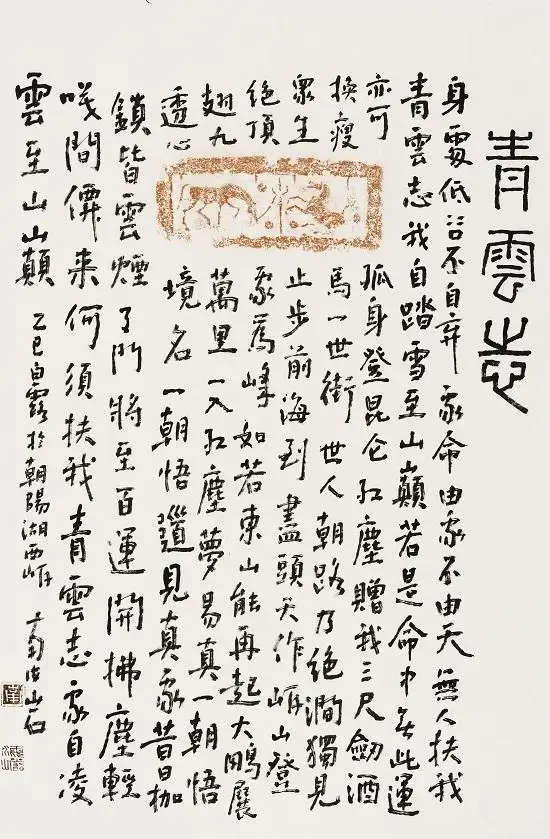 青雲志
身處低谷不自弃 我命由我不由天 無人扶我
青雲志我自踏雪至山巔若是命中無此運
亦可孤身登昆仑红塵贈我三尺劍酒
換瘦馬一世街 世人朝路乃絕澗獨見
眾生止步前海到盡頭天作岸山登
絕頂我為峰如若東山能再起大鵬展
翅九萬里一入红塵夢易真一朝悟
透心境名一朝悟道見真我昔日枷
鎖皆雲煙了門將至百運開拂塵輕
間來何須扶我青雲志我自凌
雲至山山巔
乙巳白露於朝陽湖西岸 山石